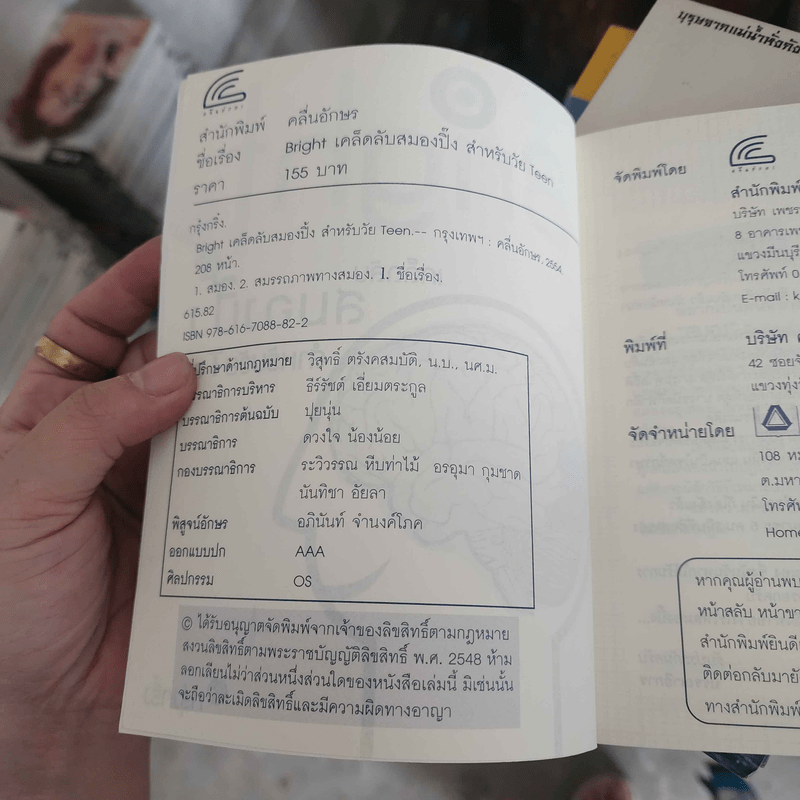 บุรุษจากแม่น้ำ
คลื่นอักษร
สำนักพิมพ์ คลื่นอักษร
ชื่อเรื่อง Bright เคล็ดลับสมองปิ๊ง สำหรับวัย Teen
ราคา 155 บาท
กรุ๋งกริ๋ง.
Bright เคล็ดลับสมองปิ๊ง สำหรับวัย Teen.-- กรุงเทพฯ : คลื่นอักษร, 2554.
208 หน้า.
1. สมอง. 2. สมรรถภาพทางสมอง. I. ชื่อเรื่อง.
615.82
ISBN 978-616-7088-82-2
ปรึกษาด้านกฎหมาย วิสุทธิ์ ตรังคสมบัติ, น.บ., นศ.ม.
บรรณาธิการบริหาร ธีร์รัชต์ เอี่ยมตระกูล
บรรณาธิการต้นฉบับ ปุยนุ่น
บรรณาธิการ ดวงใจ น้องน้อย
กองบรรณาธิการ ระวิวรรณ หีบท่าไม้ อรอุมา กุมชาด
นันทิชา อัยลา
พิสูจน์อักษร อภินันท์ จำนงค์โภค
ออกแบบปก AAA
ศิลปกรรม OS
© ได้รับอนุญาตจัดพิมพ์จากเจ้าของลิขสิทธิ์ตามกฎหมาย
สงวนลิขสิทธิ์ตามพระราชบัญญัติลิขสิทธิ์ พ.ศ. 2548 ห้าม
ลอกเลียนไม่ว่าส่วนหนึ่งส่วนใดของหนังสือเล่มนี้ มิเช่นนั้น
จะถือว่าละเมิดลิขสิทธิ์และมีความผิดทางอาญา
จัดพิมพ์โดย
สำนักพิมพ์
บริษัท เพชร
8 อาคารเพ
แขวงมีนบุรี
โทรศัพท์ 0
E-mail : k
พิมพ์ที่ บริษัท
42 ซอย
แขวงทุ่ง
จัดจำหน่ายโดย
108 หม
ต.มหา
โทรศัพ
Home
หากคุณผู้อ่านพบ
หน้าสลับ หน้าขา
สำนักพิมพ์ยินดี
ติดต่อกลับมายั
ทางสำนักพิมพ์